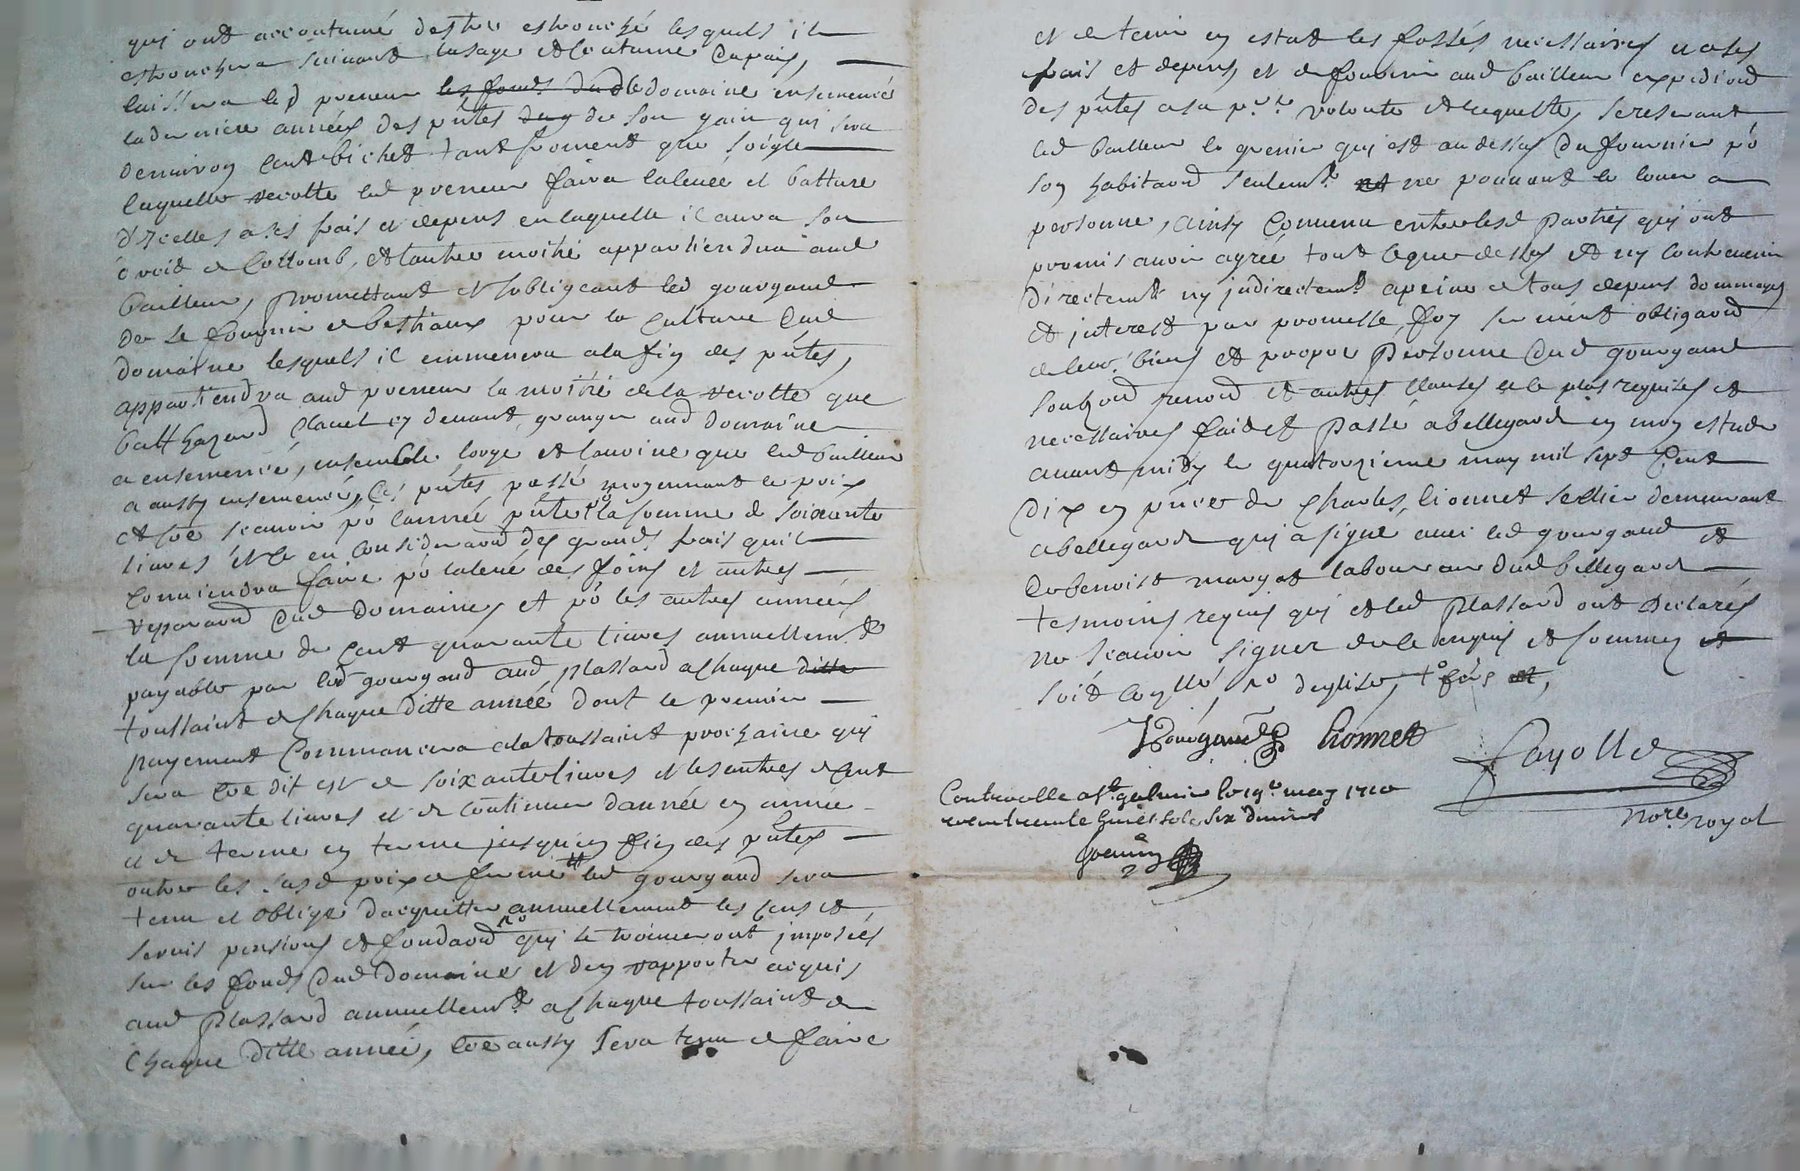 qui ont accoutumé destre estronché lesquels il
estronchera suivant lusage et coutume du païs,
laissera led preneur les fonds dud le domaine ensemencé
la derniere année des pntes de son gain qui sera
denviron cent bichet tant froment que soigle
laquelle recolte led preneur faira la levée et batture
dicelles a ses frais et depens en laquelle il aura son
droit de collomb, et lautre moitié appartiendra aud
bailleur, promettant et sobligeant led gourgaud
de se fournir de bestiaux pour la culture dud
domaine lesquels il emmenera a la fin des pntes,
appartiendra aud preneur la moitié de la recolte que
balthazard clauel cy devant granger aud domaine
a ensemencé, ensemble lorge et lavoine que led bailleur
a aussy ensemencé, ces pntes passé moyennant le prix
et soe scavoir po lannée pnte la somme de soixante
livres et ce en consideraon des grands frais quil
conviendra faire po la levé des foins et autres
reparaon dud domaine, et po les autres années
la somme de cent quarante livres annuellemt
payable par led gourgaud aud plassard a chaque ditte
toussaint de chaque ditte année dont le premier
payement commancera a la toussaint prochaine qui
sera coe dit est de soixante livres et les autres de cent
quarante livres et de continuer dannée en année
et de terme en terme jusquen fin des pntes
outre les susd prix de ferme led gourgaud sera
tenu et obligé dacquitter annuellement les cens et
servis pensions et fondaon qui se trouveront imposées
sur les fonds dud domaine et den rapporter acquis
aud plassard annuellemt a chaque toussaint de
chaque ditte année, coe aussy sera tenu de faire
et de tenir en estat les fossés necessaires a ses
frais et depens, et de fournir aud bailleur expedition
des pntes a sa pre volonté et requeste, se reservant
led bailleur le grenier qui est au dessus du fournier po
son habitaon seulemt ne pouvant le louer a
personne, ainsy convenu entre lesd parties qui ont
promis avoir agréé tout ce que dessus et ny contrevenir
directemt ny indirectemt a peine de tous depens dommages
et interest par promesse, foy serment obligaon
de leurs biens et propre personne dud gourgaud
soubzon renon et autres clauses de le plus requises et
necessaires fait et passé a bellegarde en mon estude
avant midy le quatorzieme may mil sept cent
dix en pnce de charles lionnet sellier demeurant
a bellegarde qui a signé avec led gourgaud et
de benoist margot laboureur dud bellegarde
tesmoins requis qui et led plassard ont declarés
ne scavoir signer de le enquis et sommez et
soit
Gourgaud lionnet
fayolle
nore royal
Controlle a st galmier le 19e may 1710